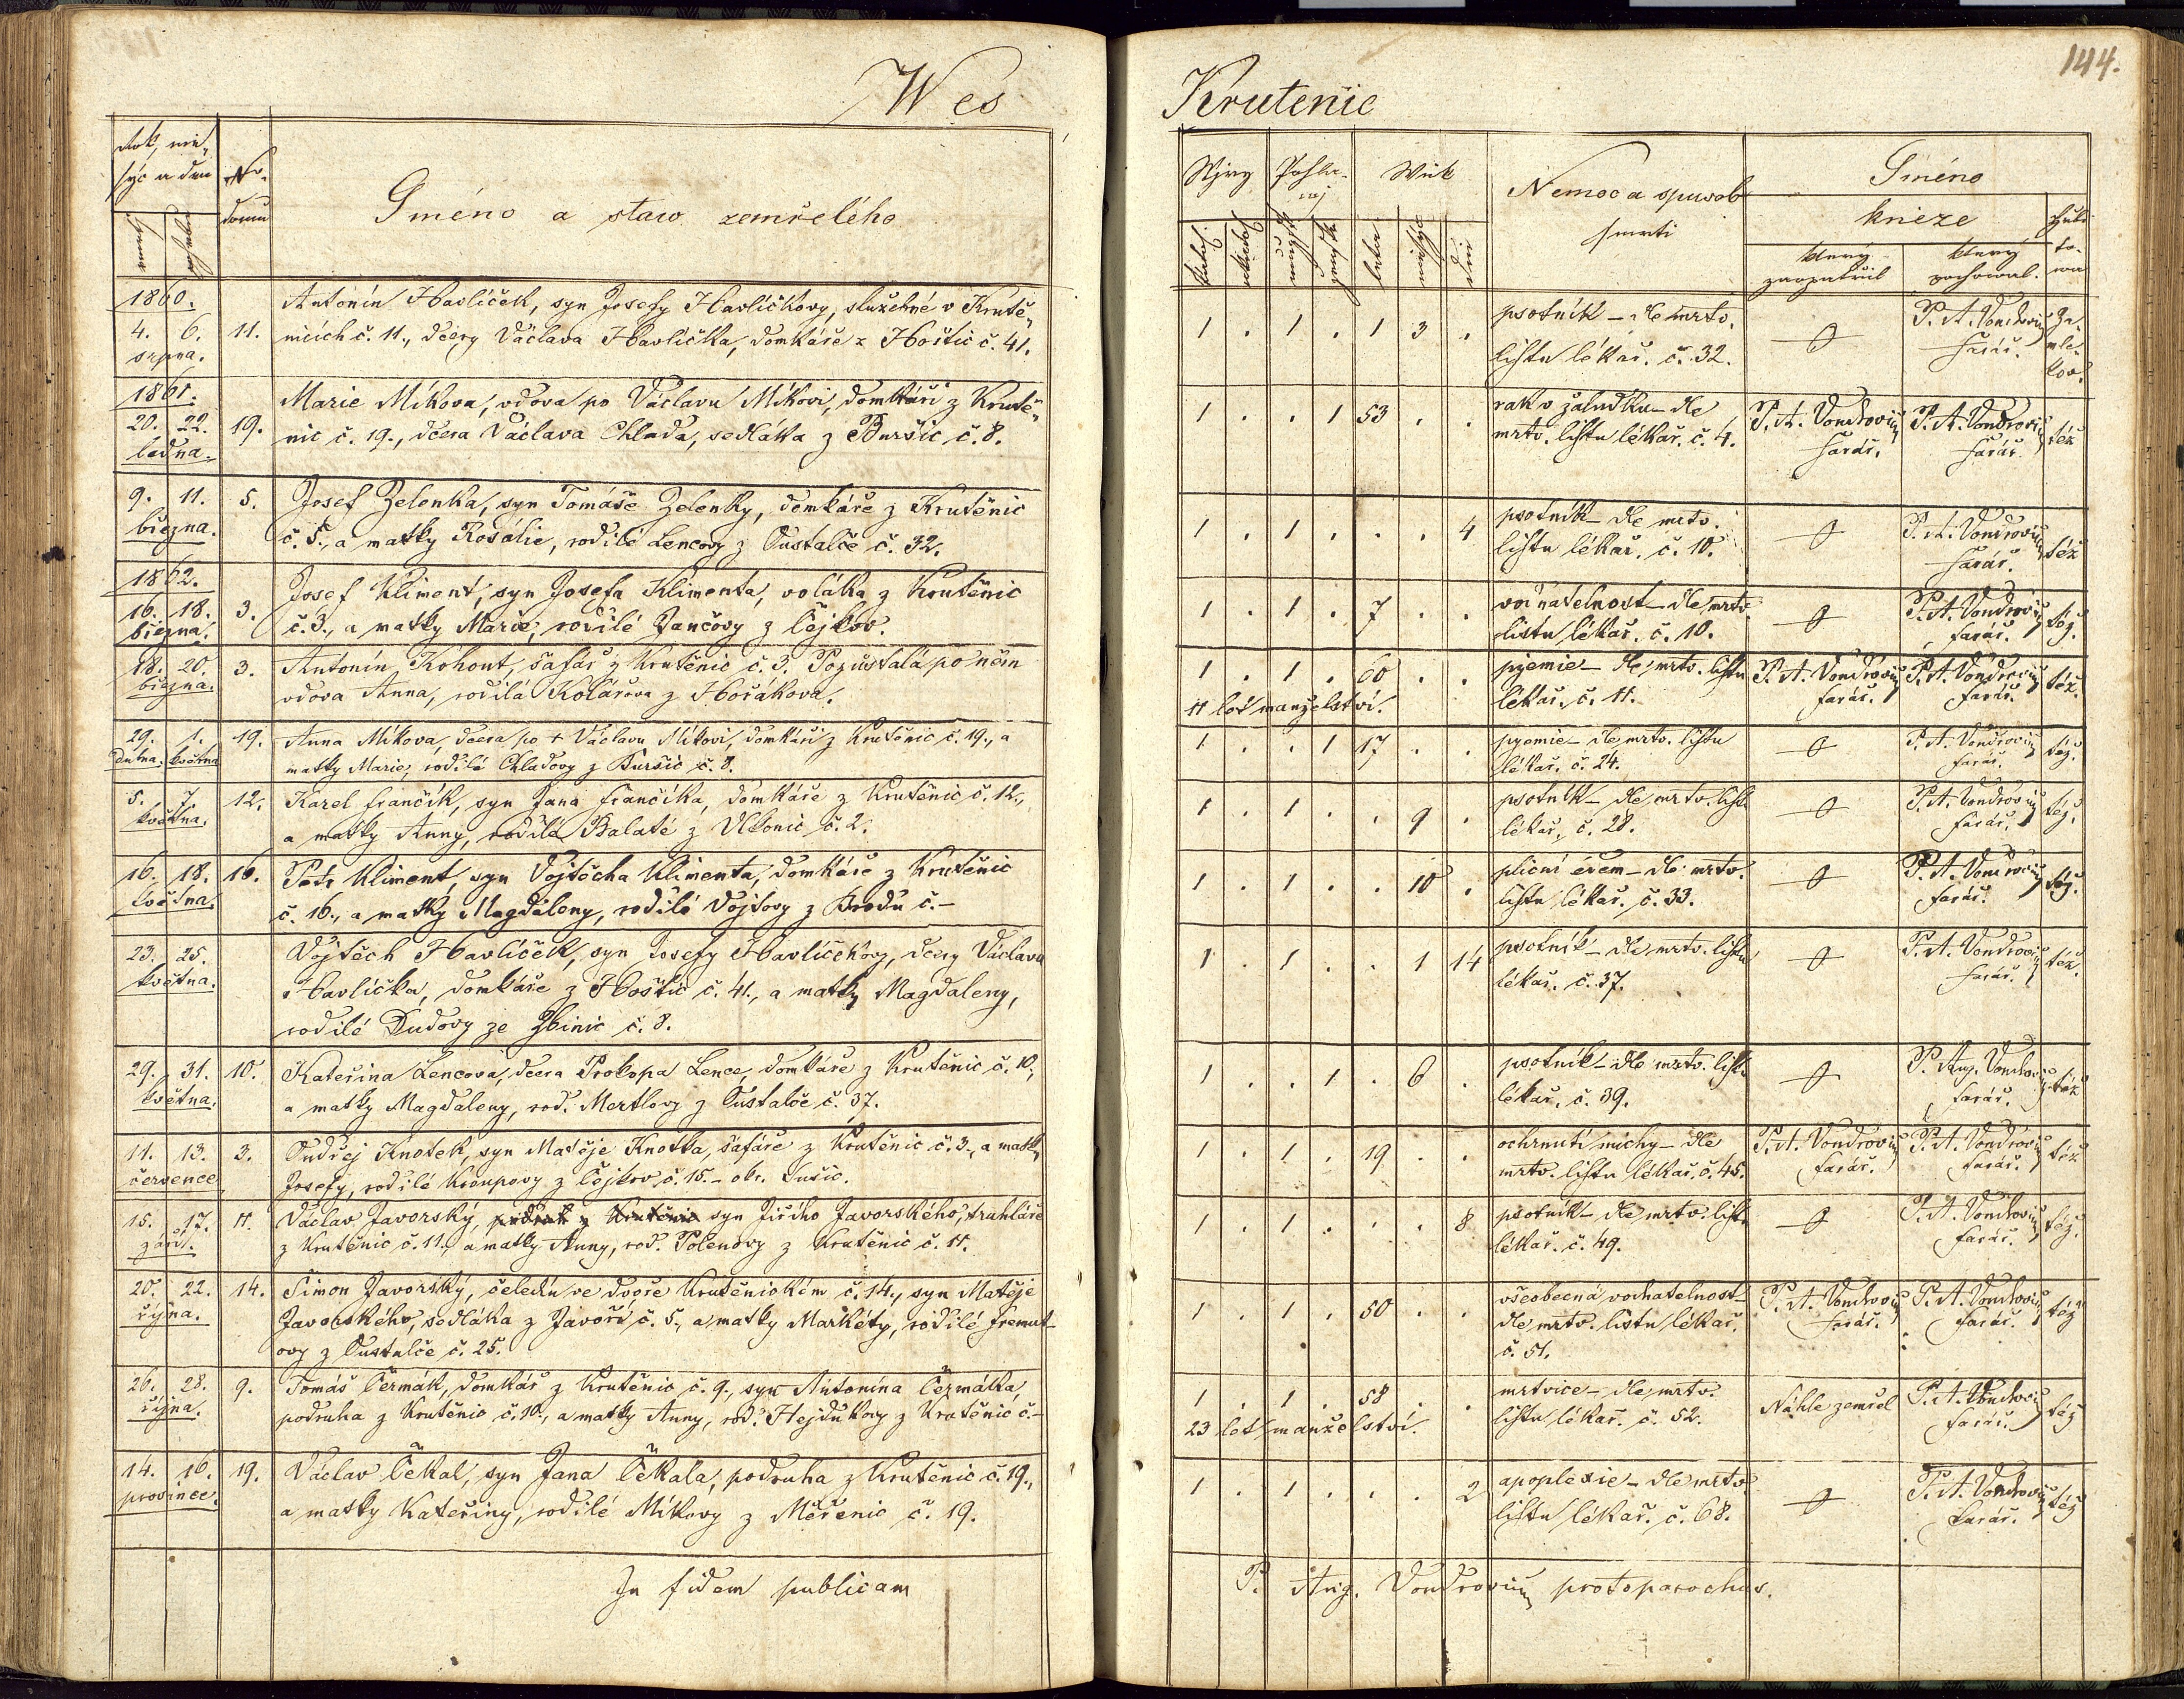 Wes
Rok, mě-
syc a den
No.
domu
Gméno a staw zemřelého
1860.
4. 6. srpna. 11. Antonín Havlíček, syn Josefy Havlíčkovy, služebné v Krutě-
nicích č. 11., dcery Václava Havlíčka, domkáře z Hoštic č. 41.
1861.
20. 22. ledna. 19. Marie Míkova, vdova po Václavu Míkovi, domkáři z Krutě-
nic č. 19., dcera Václava Chlada, sedláka z Buršic č. 8.
9. 11. března. 5. Josef Zelenka, syn Tomáše Zelenky, domkáře z Krutěnic
č. 5., a matky Rosálie, rodilé Lencovy z Oustalče č. 32.
1862.
16. 18. března. 3. Josef Kliment, syn Josefa Klimenta, voláka z Krutěnic
č. 3., a matky Marie, rodilé Jančovy z Čejkov.
18. 20. března. 3. Antonín Kohout, šafář z Krutěnic č. 3. Pozůstalá po něm
vdova Anna, rodilá Kolářova z Hořákova.
29. dubna. 1. května 19. Anna Míkova, dcera po + Václavu Míkovi, domkáři z Krutěnic č. 19., a
matky Marie, rodilé Chladovy z Buršic č. 8.
5. 7. května. 12. Karel Frančík, syn Jana Frančíka, domkáře z Krutěnic č. 12.,
a matky Anny, rodilé Balaté z Vlkonic č. 2.
16. 18. května. 16. Petr Kliment, syn Vojtěcha Klimenta, domkáře z Krutěnic
č. 16., a matky Magdaleny, rodilé Vojtovy z Brodu č. –
23. 25. května. Vojtěch Havlíček, syn Josefy Havlíčkovy, dcery Václava
Havlíčka, domkáře z Hoštic č. 41., a matky Magdaleny,
rodilé Dudovy ze Zbinic č. 8.
29. 31. května. 10. Kateřina Lencova, dcera Prokopa Lence, domkáře z Krutěnic č. 10.,
a matky Magdaleny, rod. Mertlovy z Oustalče č. 37.
11. 13. července 3. Ondřej Knotek, syn Matěje Knotka, šafáře z Krutěnic č. 3., a matky
Josefy, rodilé Kroupovy z Čejkov č. 15. – okr. Sušic.
15. 17. září. 11. Václav Javorský, syn Jiřího Javorského, truhláře
z Krutěnic č. 11., a matky Anny, rod. Polenovy z Krutěnic č. 11.
20. 22. října. 14. Šimon Javorský, čeledín ve dvoře Krutěnickém č. 14., syn Matěje
Javorského, sedláka z Javoří č. 5., a matky Markéty, rodilé Fremut-
ovy z Oustalče č. 25.
26. 28. října. 9. Tomáš Čermák, domkář z Krutěnic č. 9., syn Antonína Čermáka,
podruha z Krutěnic č. 10., a matky Anny, rod. Hejdukovy z Krutěnic č. –
14. 16. prosince. 19. Václav Čekal, syn Jana Čekala, podruha z Krutěnic č. 19.,
a matky Kateřiny, rodilé Míkovy z Měřenic č. 19.
In fidem publicam
144.
Krutenic
Wjry Pohla-
wj Wěk
Nemoc a spusob
smrti
Gméno
kněze
který
zaopatřil
který
pochowal.
1 . 1 . 1 3 . psotník – dle mrtv.
listu lékař. č. 32. 0 P. A. Vondrovic
farář.
1 . . 1 53 . . rak v žaludku – dle
mrtv. listu lékař. č. 4. P. A. Vondrovic
farář. P. A. Vondrovic
farář. též
1 . 1 . . . 4 psotník – dle mrtv.
listu lékař. č. 10. 0 P. A. Vondrovic
farář. též
1 . 1 . 7 . . vodnatelnost – dle mrtv.
listu lékař. č. 10. 0 P. A. Vondrovic
farář. též.
1 . 1 . 60 . . pyemie – dle mrtv. listu
lékař. č. 11. P. A. Vondrovic
farář. P. A. Vondrovic
farář. též.
11 let manželství.
1 . . 1 17 . . pyemie – dle mrtv. listu
lékař. č. 24. 0 P. A. Vondrovic
farář. též.
1 . 1 . . 9 . psotník – dle mrtv. listu
lékař. č. 28. 0 P. A. Vondrovic
farář. též.
1 . 1 . . 10 . plicní édem – dle mrtv.
listu lékař. č. 33. 0 P. A. Vondrovic
farář. též.
1 . 1 . . 1 14 psotník – dle mrtv. listu
lékař. č. 37. 0 P. A. Vondrovic
farář. též.
1 . . 1 . 6 . psotník – dle mrtv. listu
lékař. č. 39. 0 P. Aug. Vondrovic
farář. též
1 . 1 . 19 . . ochrnutí míchy – dle
mrtv. listu lékař. č. 45. P. A. Vondrovic
farář. P. A. Vondrovic
farář. též
1 . 1 . . . 8 psotník – dle mrtv. listu
lékař. č. 49. 0 P. A. Vondrovic
farář. též.
1 . 1 . 50 . . všeobecná vodnatelnost –
dle mrtv. listu lékař.
č. 51. P. A. Vondrovic
farář. P. A. Vondrovic
farář. též
1 . 1 . 58 . . mrtvice – dle mrtv.
listu lékař. č. 52. Náhle zemřel P. A. Vondrovic
farář. též
23 let manželství.
1 . 1 . . . 2 apoplexie – dle mrtv.
listu lékař. č. 68. 0 P. A. Vondrovic
farář. též
P. Aug. Vondrovic protoparochus.